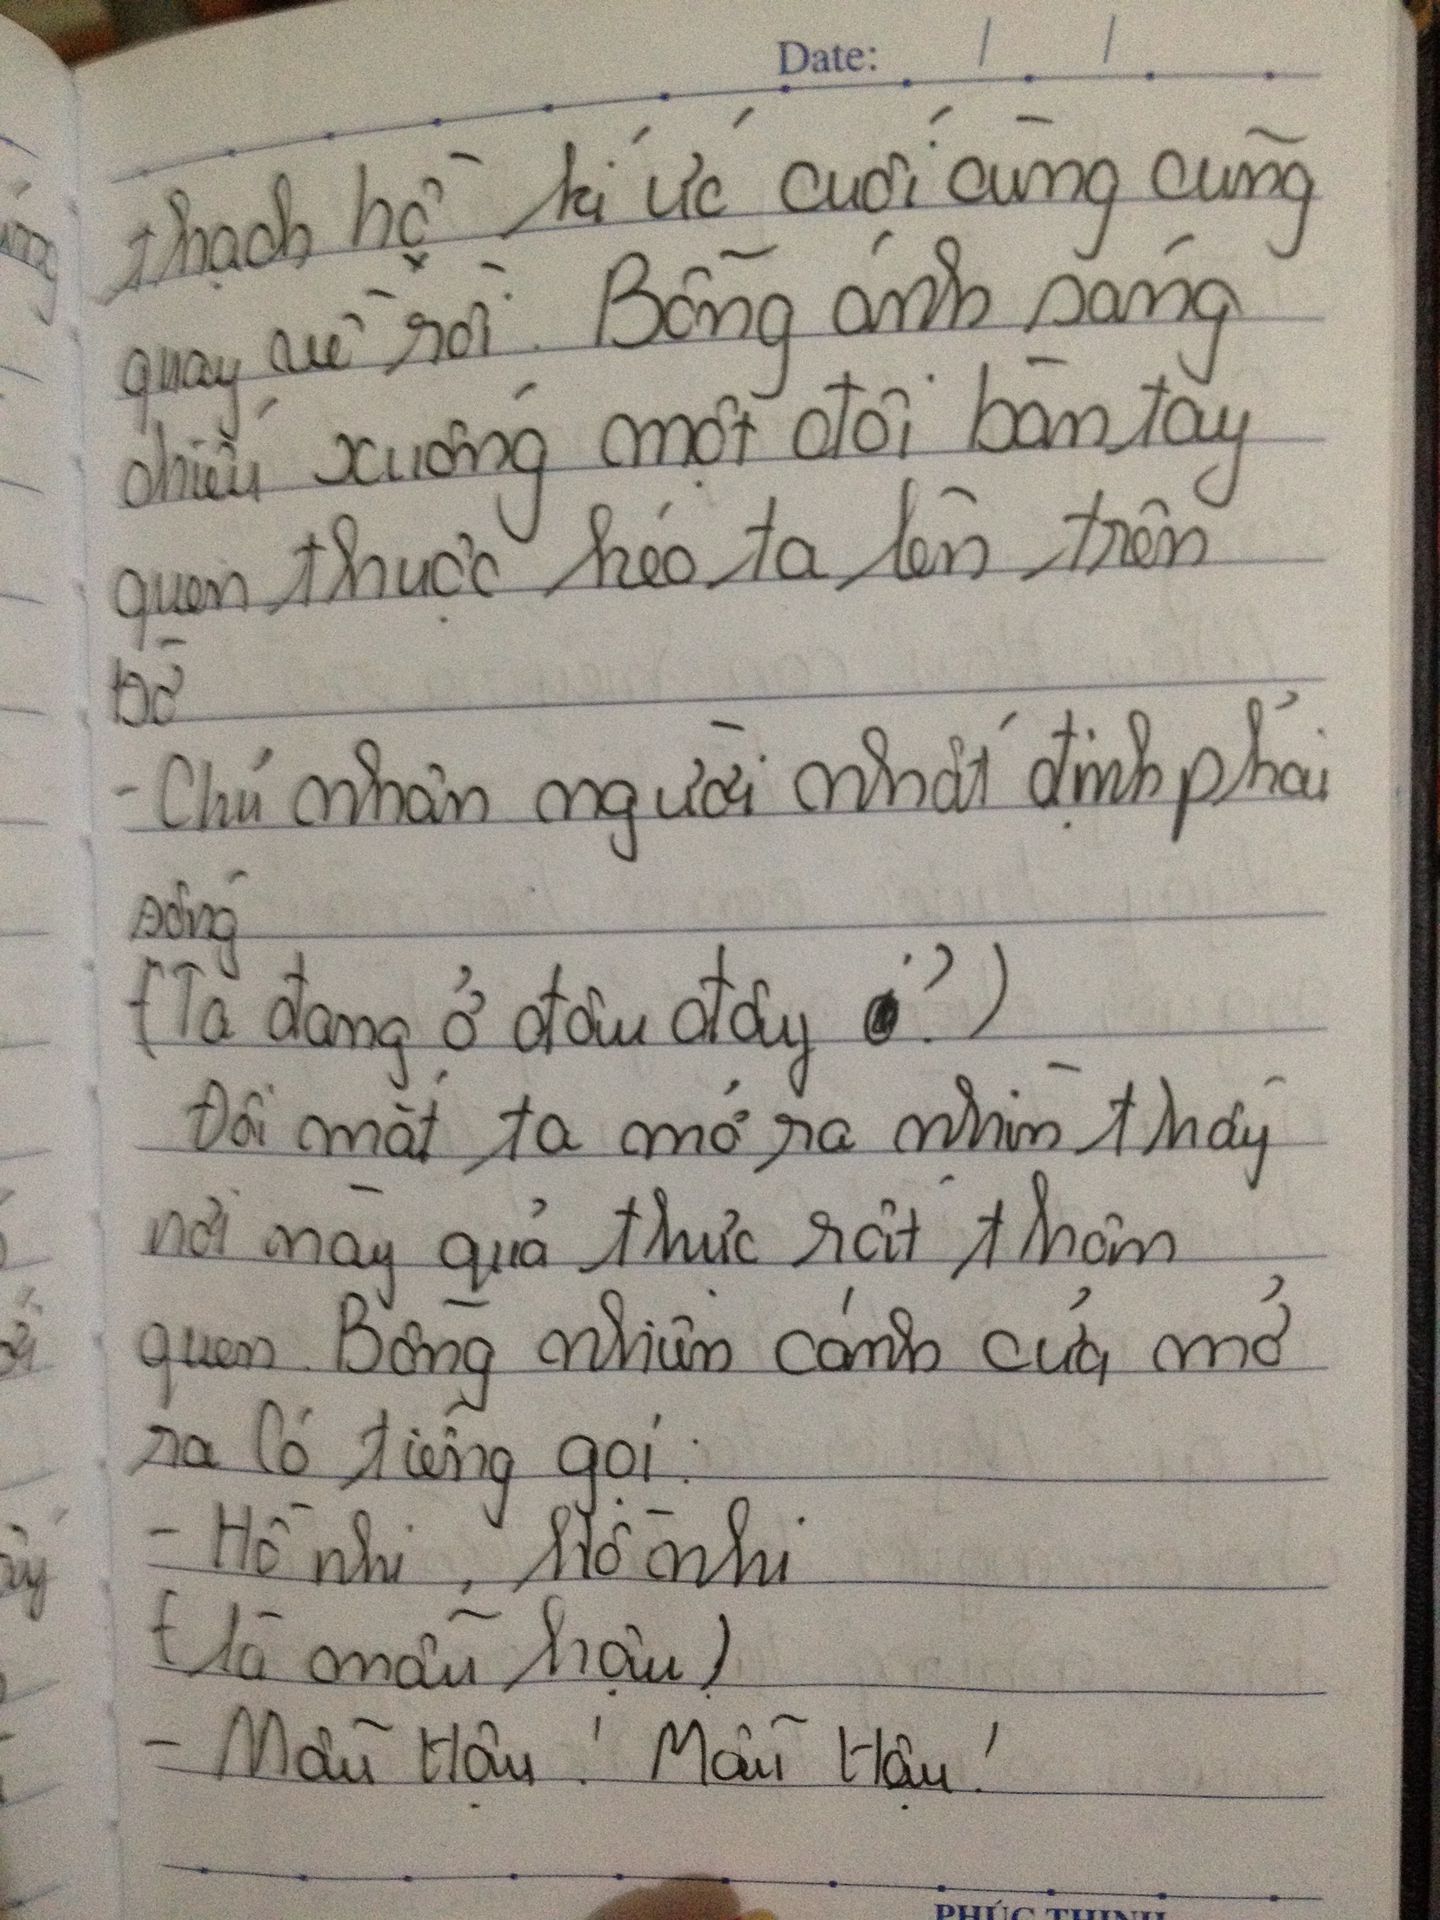 Date: / /
thạch hồ kí ức cuối cùng cũng
quay về rồi. Bỗng ánh sáng
chiếu xuống một đôi bàn tay
quen thuộc kéo ta lên trên
bờ
- Chủ nhân người nhất định phải
sống
(Ta đang ở đâu đây ?)
Đôi mắt ta mở ra nhìn thấy
nơi này quả thực rất thân
quen. Bỗng nhiên cánh cửa mở
ra Có tiếng gọi:
- Hồ nhi, Hồ nhi
(là mẫu hậu)
- Mẫu Hậu! Mẫu Hậu!
PHÚC THỊNH